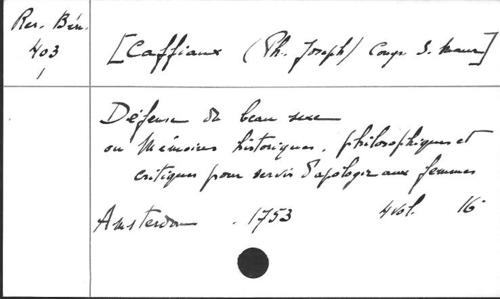 Res. Bén.
403
1
[Caffiaux (Ph. Joseph) Congr S. Maur]
Défense du beau sexe
ou Mémoires historiques, philosophiques et
critiques pour servir d'apologie aux femmes
Amsterdam . 1753 4 vol. 16°